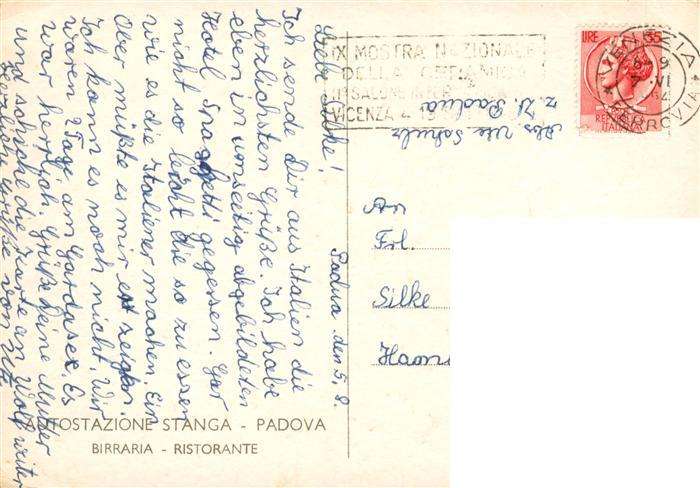 Padua, den 5. 8.
Liebe Silke!
Ich sende Dir aus Italien die
herzlichsten Grüße. Ich habe
eben in umseitig abgebildeten
Hotel Spaghetti gegessen. Gar
nicht so leicht die so zu essen
wie es die Italiener machen. Ein
Ober mußte es mir erst zeigen.
Ich kann es noch nicht. Wir
waren 2 Tage am Gardasee. Es
war herrlich. Grüße Deine Mutter
und schicke die Karte an Wolf weiter
Herzliche Grüße von Ute
Abs. Ute Schulz
z. Zt. Padua
An
Frl.
Silke
Hann
AUTOSTAZIONE STANGA - PADOVA
BIRRARIA - RISTORANTE
IX MOSTRA NAZIONALE
DELLA CERAMICA
VICENZA
LIRE 35
ITALIANA
VENEZIA
FERROVIA